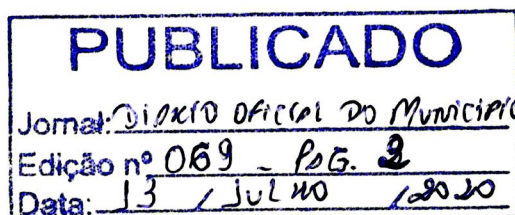 PUBLICADO
Jornal: DIÁRIO OFICIAL DO MUNICÍPIO
Edição nº 069 - PÁG. 2
Data: 13 / JULHO / 2020